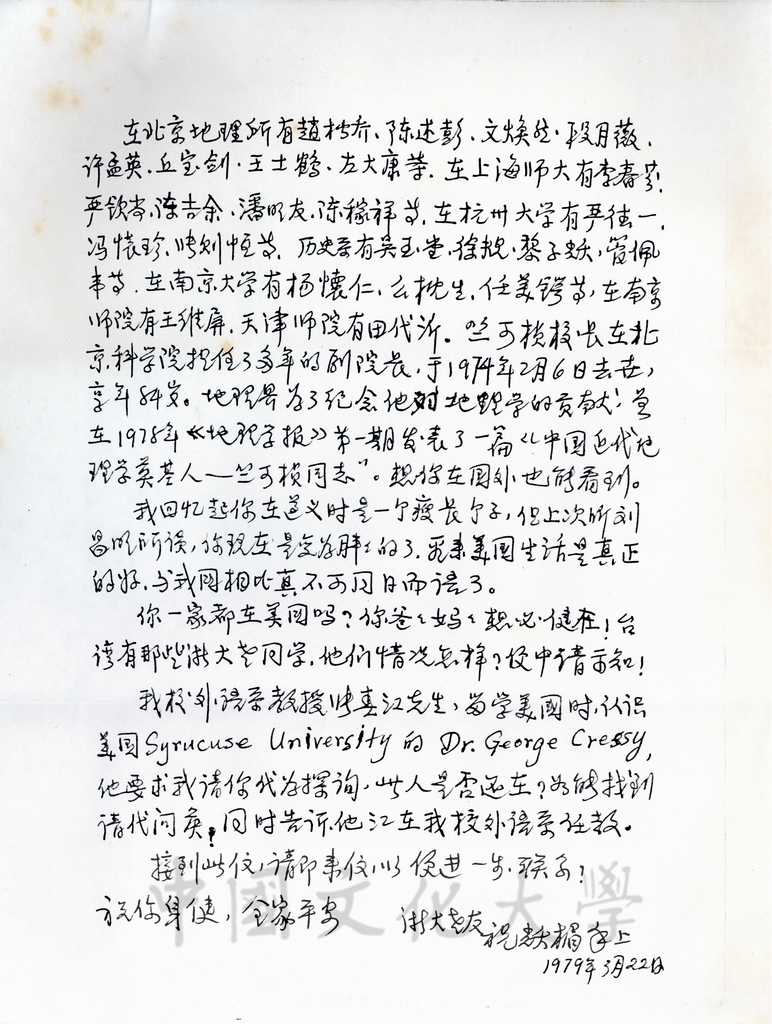 在北京地理所有趙松乔、陈述彭、文焕然、段月薇、
许孟英、丘宝剑、王士鹤、左大康等，在上海师大有李春芬、
严钦尚、陈吉余、潘明友、陈稼祥等，在杭州大学有严德一、
冯怀珍、张则恒等，历史系有吴玉堂、徐规、黎子耀、管佩
韦等，在南京大学有杨怀仁、么枕生、任美锷等，在南京
师院有王维屏，天津师院有田代沂。竺可桢校长在北
京科学院担任了多年的副院长，于1974年2月6日去世，
享年84岁。地理界为了纪念他对地理学的贡献，曾
在1978年《地理学报》第一期发表了一篇《中国近代地
理学奠基人——竺可桢同志"。想你在国外也能看到。
我回忆起你在遵义时是一个瘦长个子，但上次听刘
昌明所谈，你现在是变为胖胖的了。看来美国生活是真正
的好，与我国相比真不可同日而语了。
你一家都在美国吗？你爸爸妈妈想必健在！台
湾有那些浙大老同学，他们情况怎样？便中请示知！
我校外语系教授张真江先生，留学美国时，认识
美国Syrucuse University的Dr. George Cressy,
他要求我请你代为探询，此人是否还在？如能找到
请代问候，同时告诉他江在我校外语系任教。
接到此信，请即来信，以便进一步联系？
祝你身健，全家平安
浙大老友
祝耀楣手上
1979年3月22日
中國文化大學